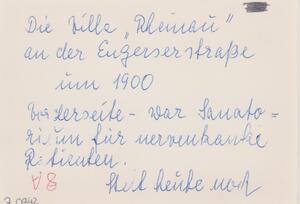 Die Villa „Rheinau"
an der Engerserstraße
um 1900
Vorderseite - war Sanato=
rium für nervenkranke
Patienten.
Steht heute noch
A8